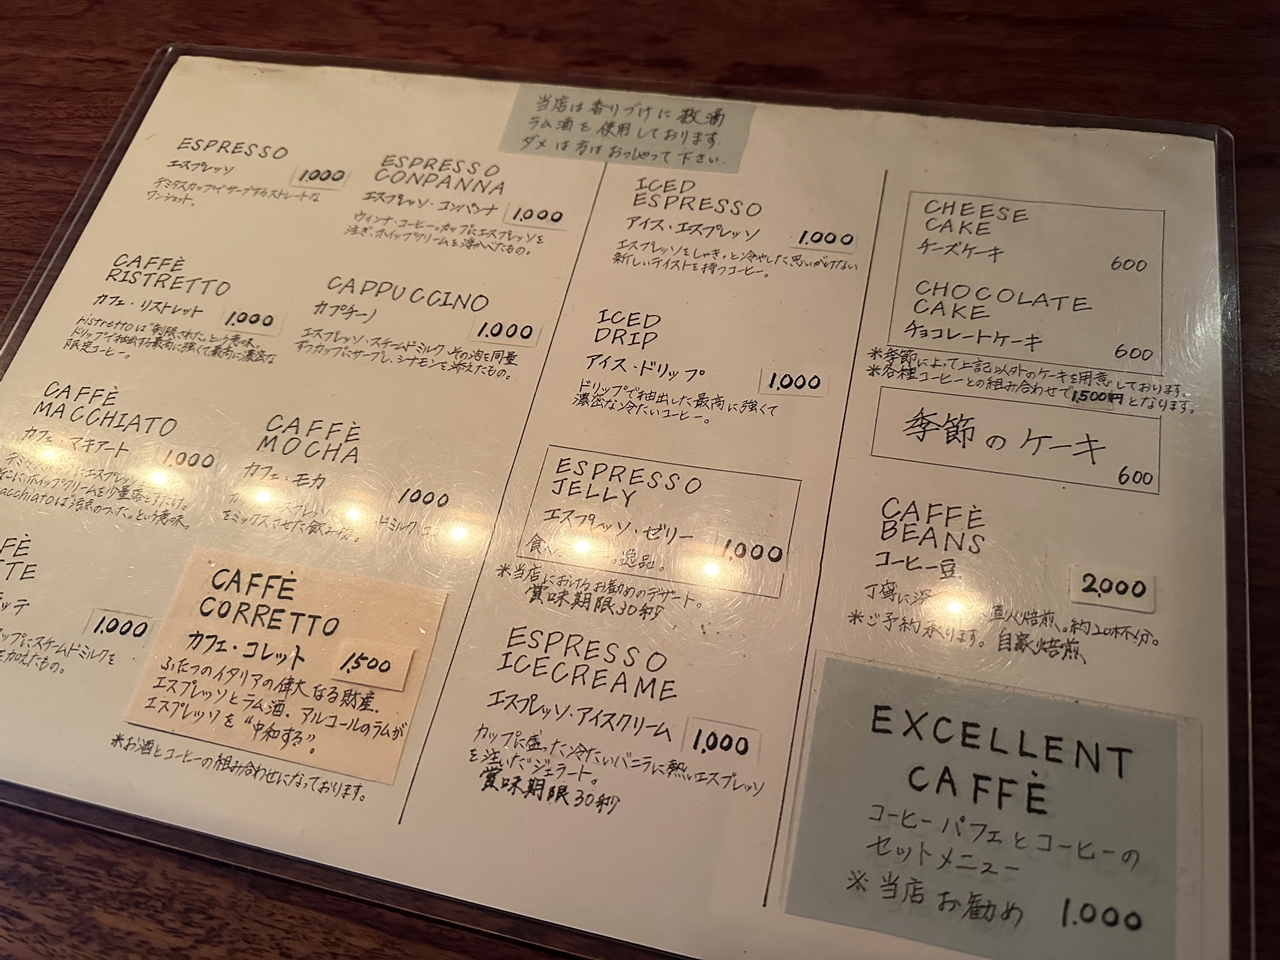 当店は香りづけに数滴
ラム酒を使用しております。
ダメな方はおっしゃって下さい。
ESPRESSO
エスプレッソ
1,000
デミタスカップでサーブするストレートな
ワンショット。
ESPRESSO
CONPANNA
エスプレッソ・コンパンナ
1,000
ウィンナ・コーヒーカップにエスプレッソを
注ぎ、ホイップクリームを浮かべたもの。
CAFFÈ
RISTRETTO
カフェ・リストレット
1,000
ristrettoは"制限された"という意味。
ドリップで抽出する最高に強くて最高に濃密な
限定コーヒー。
CAPPUCCINO
カプチーノ
1,000
エスプレッソ・スチームドミルク その泡を同量
ずつカップにサーブし、シナモンを添えたもの。
CAFFÈ
MACCHIATO
カフェ・マキアート
1,000
デミタスカップにエスプレッ
ホイップクリームを少量落とすだけ。
acchiatoは"汚点のついた"という意味。
CAFFÈ
MOCHA
カフェ・モカ
1000
ドミルク・コ
をミックスさせた飲み物。
FÈ
TTE
ラッテ
1,000
カップにスチームドミルクを
を加えたもの。
CAFFÈ
CORRETTO
カフェ・コレット
1,500
ふたつのイタリアの偉大なる財産。
エスプレッソとラム酒。アルコールのラムが
エスプレッソを"中和する"。
※お酒とコーヒーの組み合わせになっております。
ICED
ESPRESSO
アイス・エスプレッソ
1,000
エスプレッソをしゃきっと冷やした思いがけない
新しいテイストを持つコーヒー。
ICED
DRIP
アイス・ドリップ
1,000
ドリップで抽出した最高に強くて
濃密な冷たいコーヒー。
ESPRESSO
JELLY
エスプレッソ・ゼリー
1,000
逸品。
※当店におけるお勧めのデザート。
賞味期限30秒
ESPRESSO
ICECREAME
エスプレッソ・アイスクリーム
1,000
カップに盛った冷たいバニラに熱いエスプレッソ
を注いだジェラート。
賞味期限30秒
CHEESE
CAKE
チーズケーキ
600
CHOCOLATE
CAKE
チョコレートケーキ
600
※季節によって上記以外のケーキを用意しております。
※各種コーヒーとの組み合わせで1,500円となります。
季節のケーキ
600
CAFFÈ
BEANS
コーヒー豆
2,000
丁寧に深 直火焙煎。約20杯分。
※ご予約承ります。 自家焙煎
EXCELLENT
CAFFÈ
コーヒーパフェとコーヒーの
セットメニュー
※当店お勧め 1.000